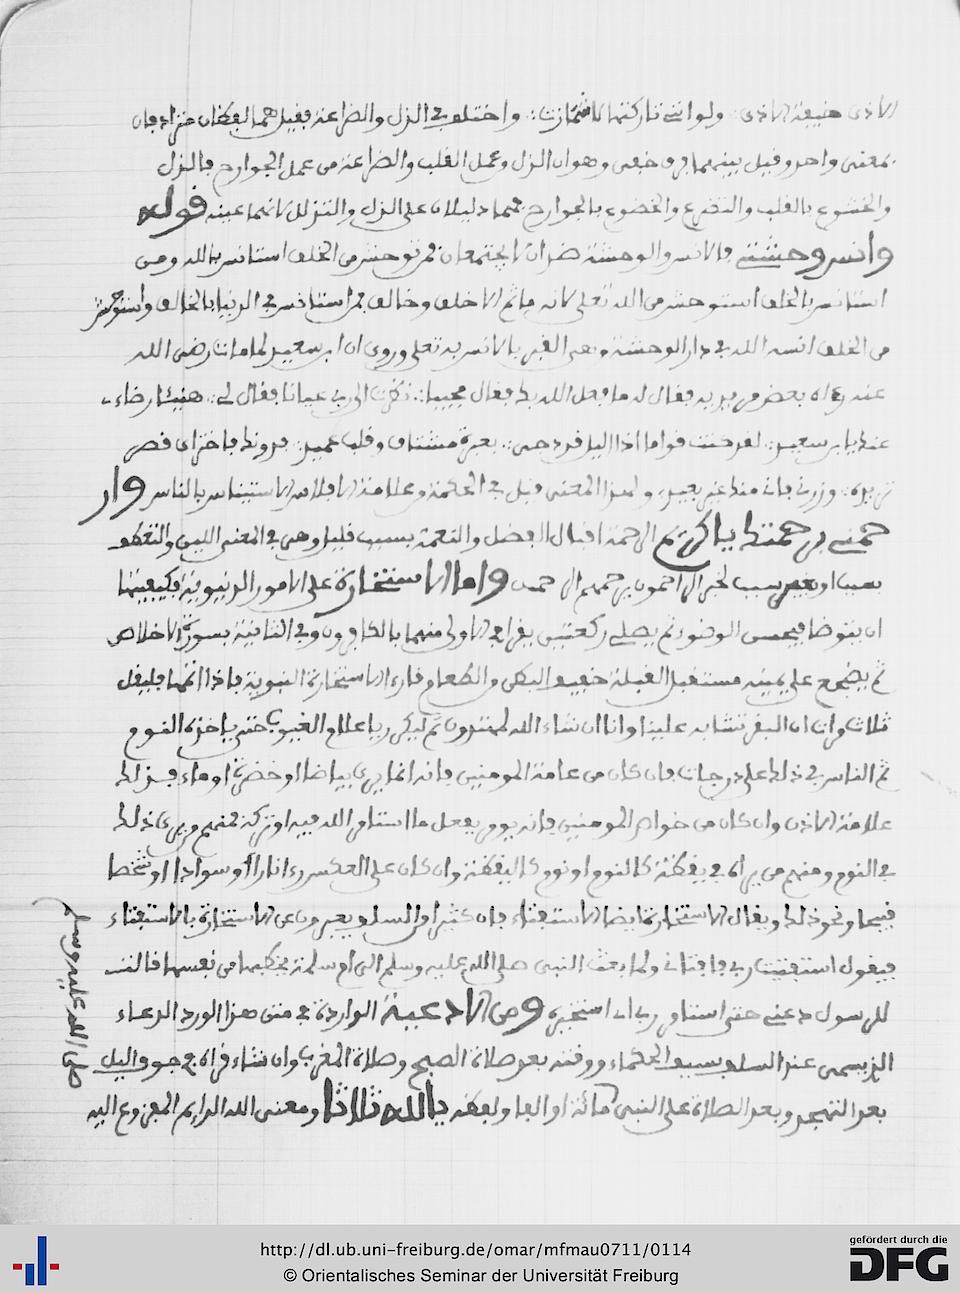 الاذى حقيقة الاذى ولو انى تاركتها لاشمازت واختلف فى الذل والضراعة فقيل هما لفظان مترادفان
بمعنى واحد وقيل بينهما فرق خفى وهو ان الذل من عمل القلب والضراعة من عمل الجوارح فالذل
والخشوع بالقلب والتضرع والخضوع بالجوارح هما دليلان على الذل والتذلل لانهما عينه قوله
وانس وحشتى فالانس والوحشة ضدان لا يجتمعان فمن توحش من الخلق استانس بالله ومن
استانس بالخلق استوحش من الله تعلى لانه ما ثم الا خلق وخالق فمن استانس فى الدنيا بالخالق واستوحش
من الخلق انسه الله فى دار الوحشة وهى القبر بالانس به تعلى وروى ان ابى سعيد لما مات رضى الله
عنه رءاه بعض مريديه فقال له ما فعل الله بك فقال مجيبا نظرت الى ربى عيانا فقال لى هنيئا رضاءى
عنك يا بن سعيد لقد كنت قواما اذا اليل قد دجى بعبرة مشتاق وقلب عميد فدونك فاختر اى قصر
تريده وزرنى فانى منك غير بعيد ولهذا المعنى قيل فى الحكمة وعلامة الافلاس الاستيناس بالناس وار
حمنى برحمتك يا كريم الرحمة اقبال الفضل والنعمة بسبب قليل وهى فى المعنى اللين والتعطف
بسبب او بغير سبب لخبر الراحمون يرحمهم الرحمن واما الاستخارة على الامور الدنيوية فكيفيتها
ان يتوضا فيحسن الوضوء ثم يصلى ركعتين يقرا فى الاولى منهما بالكافرون وفى الثانية بسورة الاخلاص
ثم يضجع على يمينه مستقبل القبلة خفيف البطن والطعام قارئ الاستخارة النبوية فاذا اتمها فليقل
ثلاث مرات ان البقر تشابه علينا وانا ان شاء الله لمهتدون ثم ليكرر يا علام الغيوب حتى ياخذه النوم
ثم الناس فى ذلك على درجات فان كان من عامة المومنين فانه انما يرى بياضا او خضرة او ماء فذلك
علامة الاذن وان كان من خواص المومنين فانه يومر بفعل ما استامر الله فيه او تركه فمنهم من يرى ذلك
فى النوم ومنهم من يراه فى يقظة كالنوم او نوم كاليقظة وان كان على العكس رءا نارا او سوادا او شخصا
قبيحا ونحو ذلك ويقال الاستخارة ايضا الاستفتاء فان كثيرا من السلف يعبرون عن الاستخارة بالاستفتاء
فيقول استفتيت ربى فافتانى ولما بعث النبى صلى الله عليه وسلم الى ام سلمة يخطبها من نفسها قالت
للرسول دعنى حتى استامر ربى اى استخيره ومن الادعية الواردة فى متن هذا الورد الدعاء
الذى يسمى عند السلف بسيف الحكماء ووقته بعد صلاة الصبح وصلاة المغرب وان شاء قراه فى جوف اليل
بعد التهجد وبعد الصلاة على النبى مائة او الفا ولفظه يا الله ثلاثا ومعنى الله الدايم المفزوع اليه
صلى الله عليه وسلم
http://dl.ub.uni-freiburg.de/omar/mfmau0711/0114
© Orientalisches Seminar der Universität Freiburg
gefördert durch die
DFG